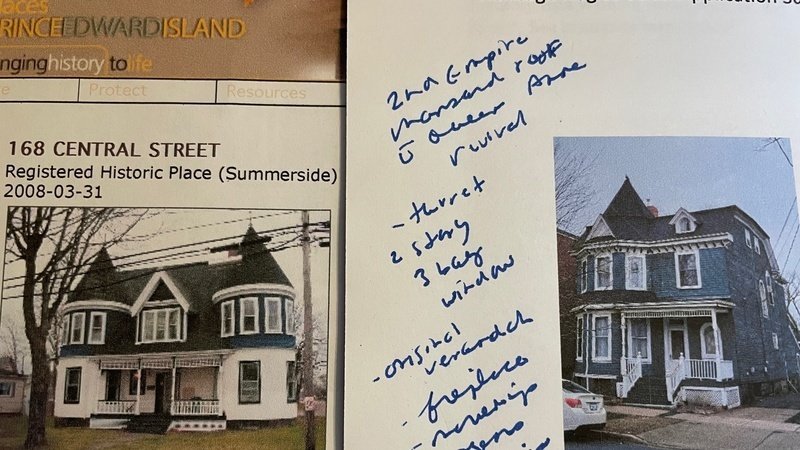 laces
RINCE EDWARD ISLAND
nging history to life
re Protect Resources
168 CENTRAL STREET
Registered Historic Place (Summerside)
2008-03-31
2nd Empire
mansard roof
Queen Anne
revival
- turret
2 story
3 bay
window
- original
verandah
- fireplace